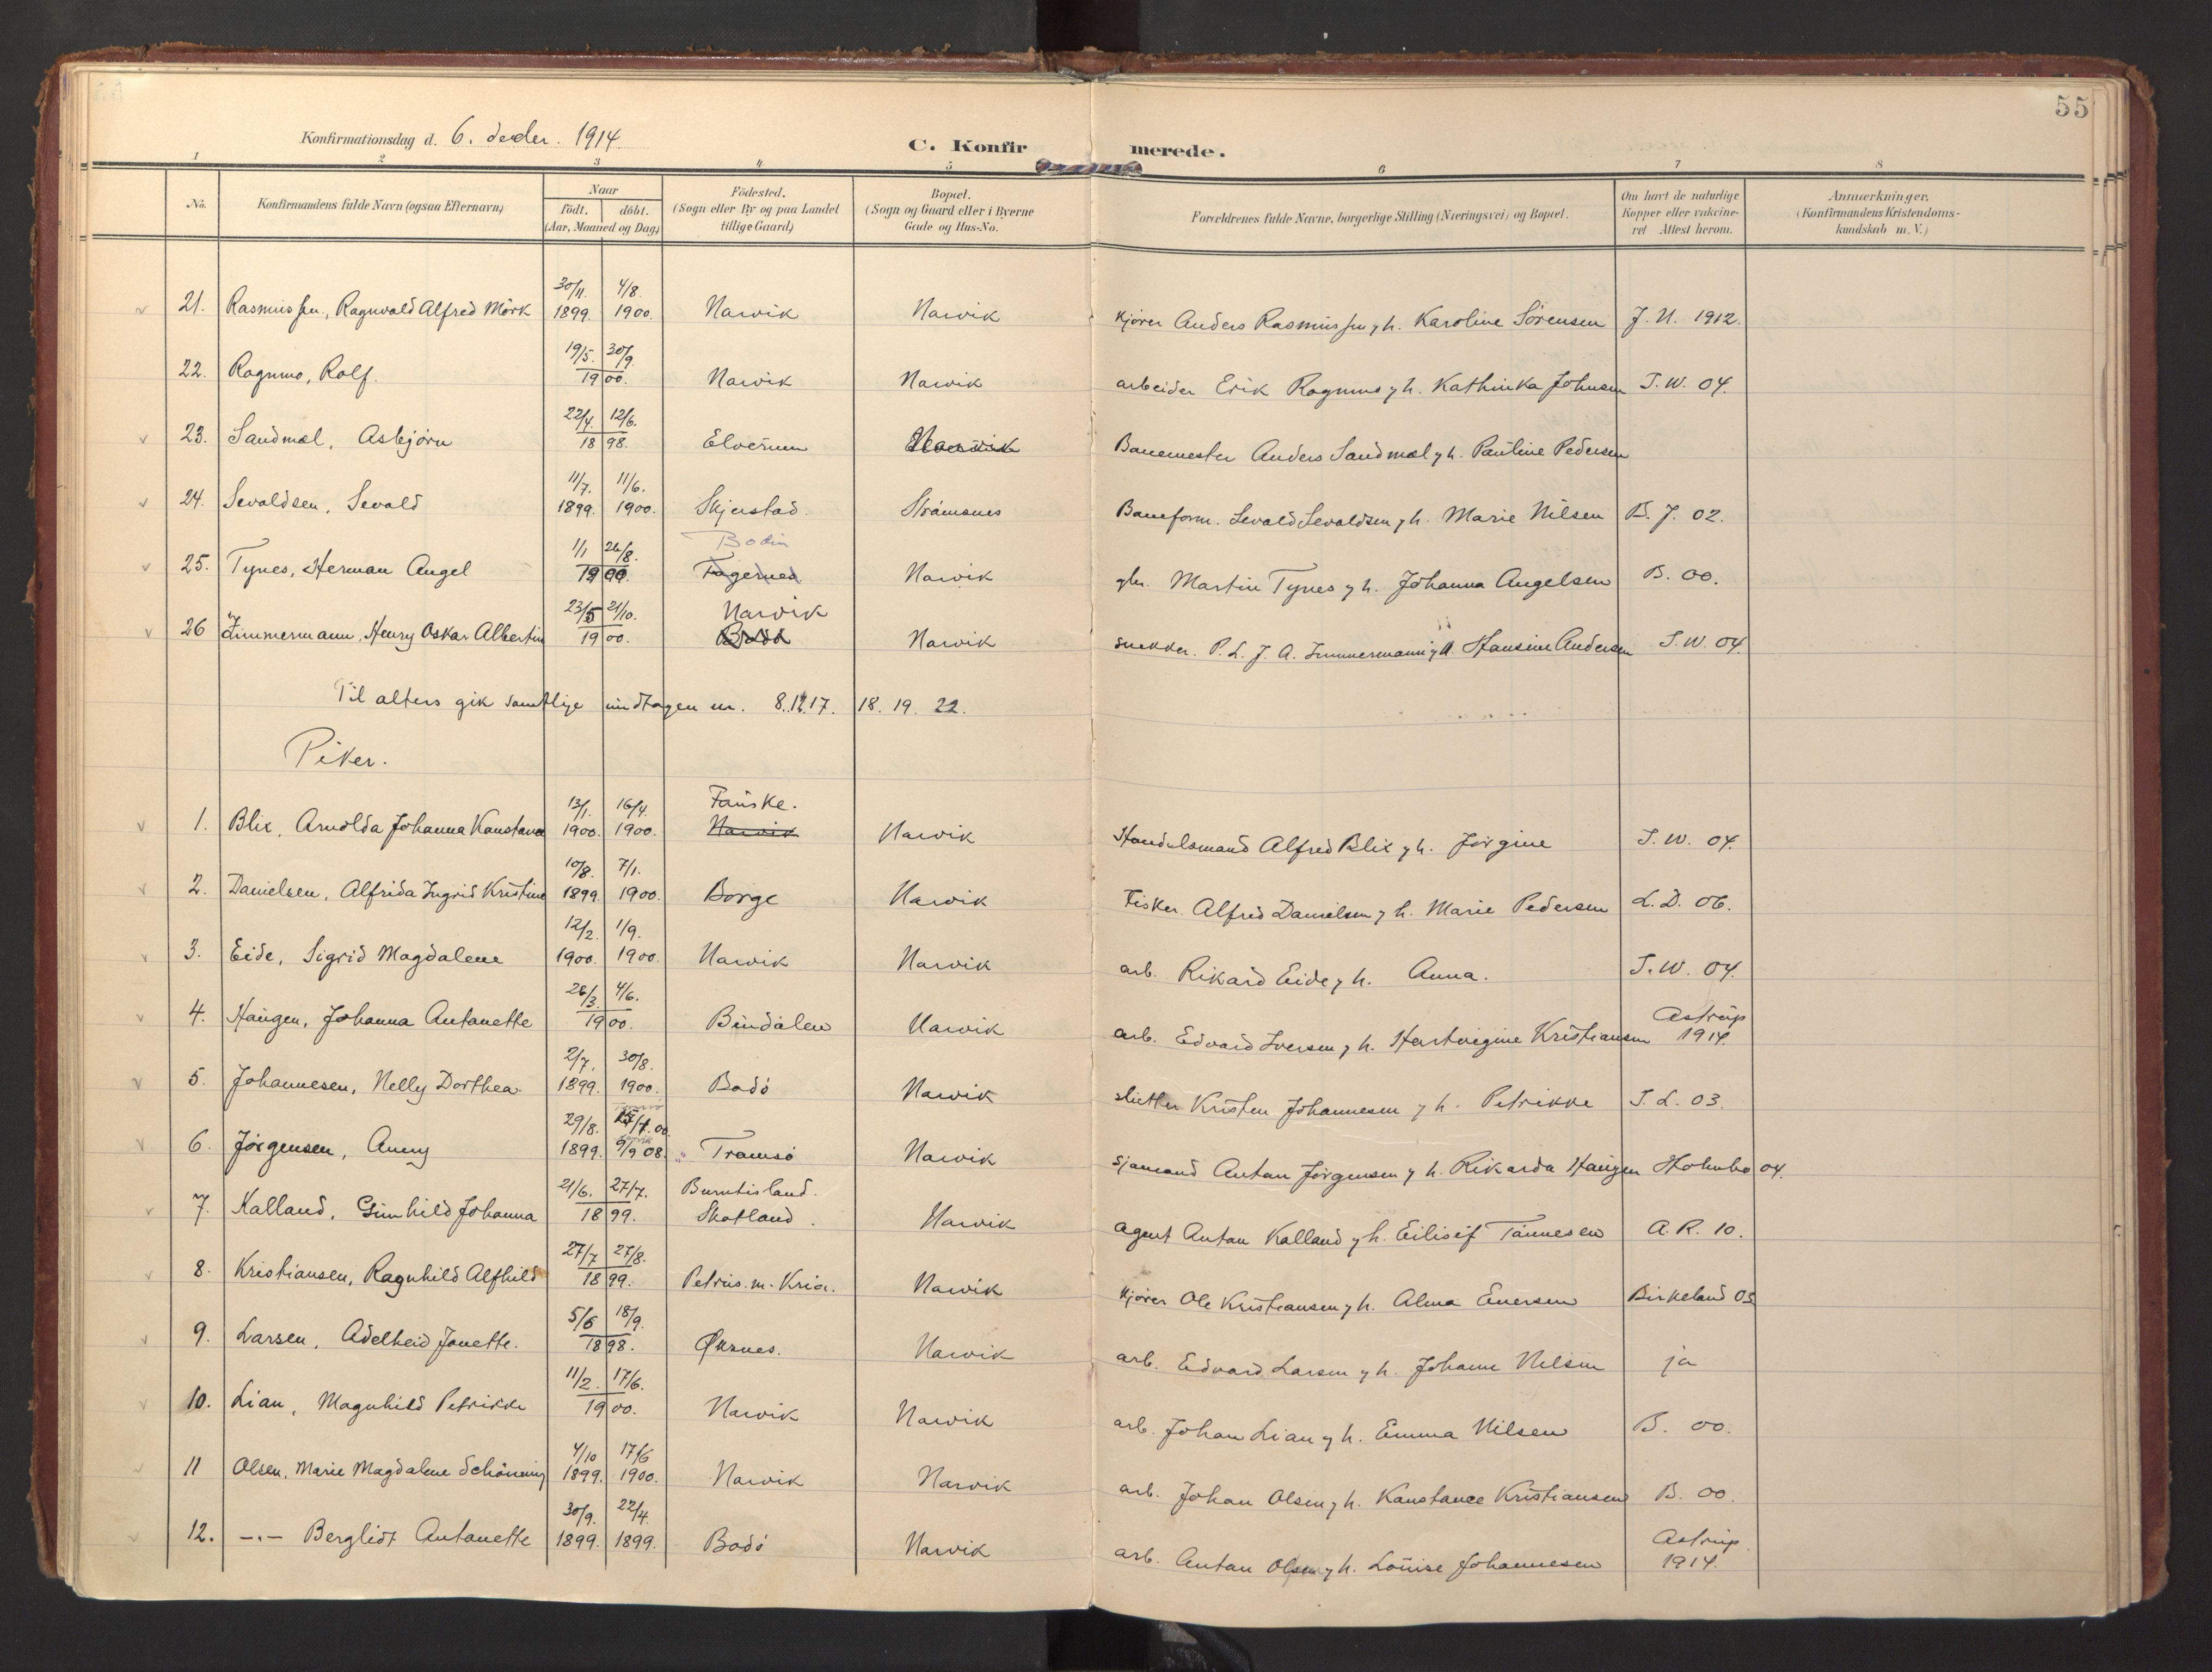 55
Konfirmationsdag d. 6. decbr. 1914.
C. Konfirmerede.
1 2 3 4 5 6 7 8
No.
Konfirmandens fulde Navn (ogsaa Efternavn)
Naar
født. døbt.
(Aar, Maaned og Dag)
Fødested.
(Sogn eller By og paa Landet
tillige Gaard)
Bopæl.
(Sogn og Gaard eller i Byerne
Gade og Hus-No.
Forældrenes fulde Navne, borgerlige Stilling (Næringsvei) og Bopæl.
Om havt de naturlige
Kopper eller vakcine-
ret Attest herom.
Anmærkninger.
(Konfirmandens Kristendoms-
kundskab m. V.)
30/11. 4/8.
21. Rasmussen, Ragnvald Alfred Mörk 1899. 1900. Narvik Narvik kjører Anders Rasmussen y h. Karoline Sörensen J. N. 1912.
19/5. 30/9.
22. Ragnmo, Rolf. 1900. Narvik Narvik arbeider Erik Ragnmo y h. Kathinka Johnsen J. W. 04.
22/4. 12/6.
23. Sandmæl, Asbjörn 1898. Elverum Narvik Banemester Anders Sandmæl y h. Pauline Pedersen
11/7. 11/6.
24. Sevaldsen, Sevald 1899. 1900. Skjerstad. Straumsnes Baneform. Sevald Sevaldsen y h. Marie Nilsen B. J. 02.
1/1 26/8. Bodin
25. Tynes, Herman Angel 1900. Fagernes Narvik gbr. Martin Tynes y h. Johanna Angelsen B. 00.
23/5 21/10. Narvik
26 Zimmermann, Henry Oskar Albertin 1900. Bodö Narvik snekker. P. L. J. A. Zimmermann y h Hansine Andersen J. W. 04.
Til alters gik samtlige undtagen nr. 8. 12. 17. 18. 19. 22.
Piker.
13/1. 16/4. Fauske.
1. Blix, Arnolda Johanna Konstance 1900. 1900. Narvik Narvik Handelsmand Alfred Blix y h. Jörgine J. W. 04.
10/8. 7/1.
2. Danielsen, Alfrida Ingrid Kristine 1899. 1900. Borge Narvik Fisker. Alfred Danielsen y h. Marie Pedersen L. D. 06.
12/2. 1/9.
3. Eide, Sigrid Magdalene 1900. 1900. Narvik Narvik arb. Rikard Eide y h. Anna. J. W. 04.
26/3. 4/6. Astrup
4. Haugen, Johanna Antonette 1900. Bindalen Narvik arb. Edvard Iversen y h. Hartvigine Kristiansen 1914.
2/7. 30/8.
5. Johannesen, Nelly Dorthea. 1899. 1900. Bodö Narvik slakter Kristen Johannesen y h. Petrikke J. L. 03.
29/8. 15/7. 00.
6. Jörgensen, Anny 1899. 9/9 08. Tromsö Narvik sjømand Anton Jörgensen y h. Rikarda Haugen Holmbo 04.
21/6. 27/7. Burntisland.
7. Kalland, Gunhild Johanna 1899. Skotland. Narvik agent Anton Kalland y h. Eilisif Tønnesen A. R. 10.
27/7 27/8.
8. Kristiansen, Ragnhild Alfhild 1899. Petrus. m. Kria. Narvik kjører Ole Kristiansen y h. Alma Enersen Birkeland 03
5/6 18/9.
9. Larsen, Adelheid Jonette. 1898. Øksnes. Narvik arb. Edvard Larsen y h. Johanne Nilsen ja
11/2. 17/6.
10. Lian, Magnhild Petrikke 1900. Narvik Narvik arb. Johan Lian y h. Emma Nilsen B. 00.
4/10 17/6
11 Olsen, Marie Magdalene Schönning 1899. 1900. Narvik Narvik arb. Johan Olsen y h. Konstance Kristiansen B. 00.
30/9. 22/4. Astrup
12. —.— Bergliot Antonette 1899. 1899. Bodö Narvik arb. Anton Olsen y h. Louise Johannesen 1914.